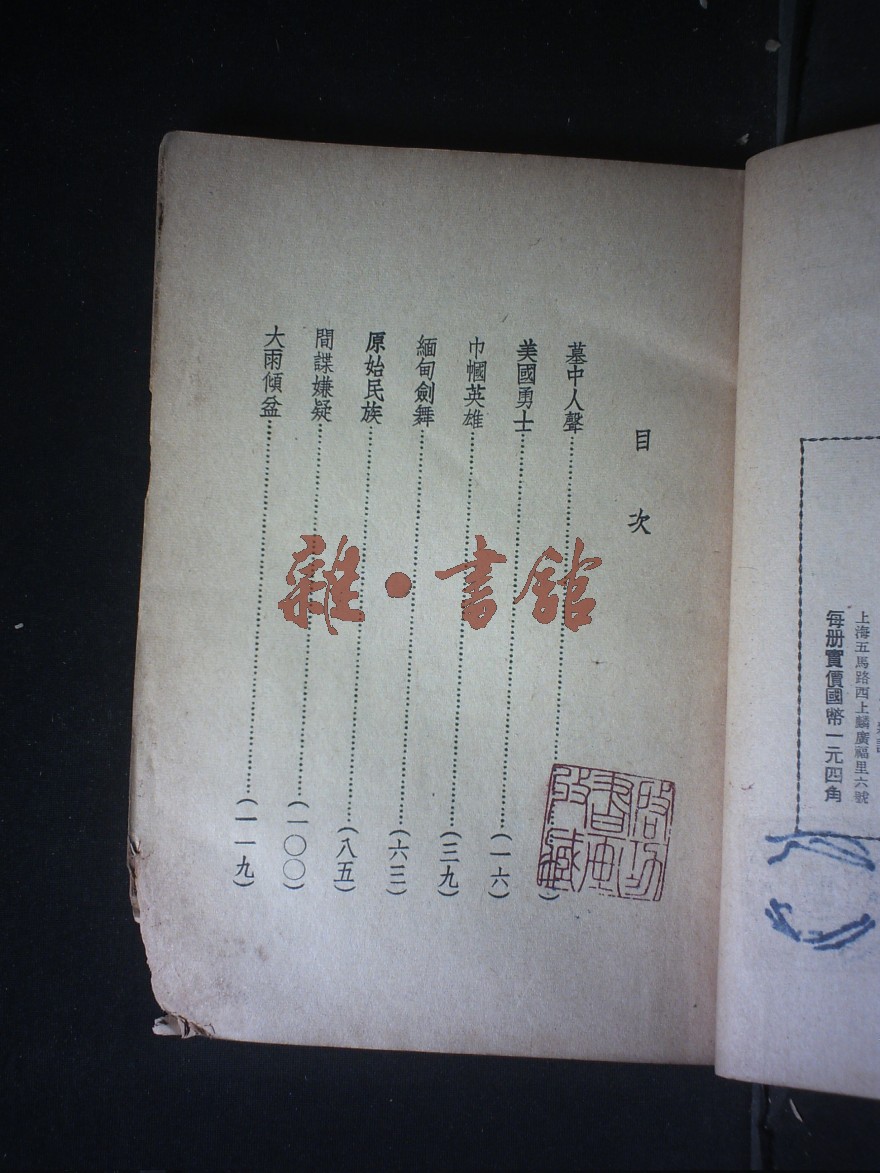 上海五馬路西上麟廣福里六號
每册實價國幣一元四角
目次
墓中人聲
美國勇士(一六)
巾幗英雄(三九)
緬甸劍舞(六三)
原始民族(八五)
間諜嫌疑(一〇〇)
大雨傾盆(一一九)
雜·書館